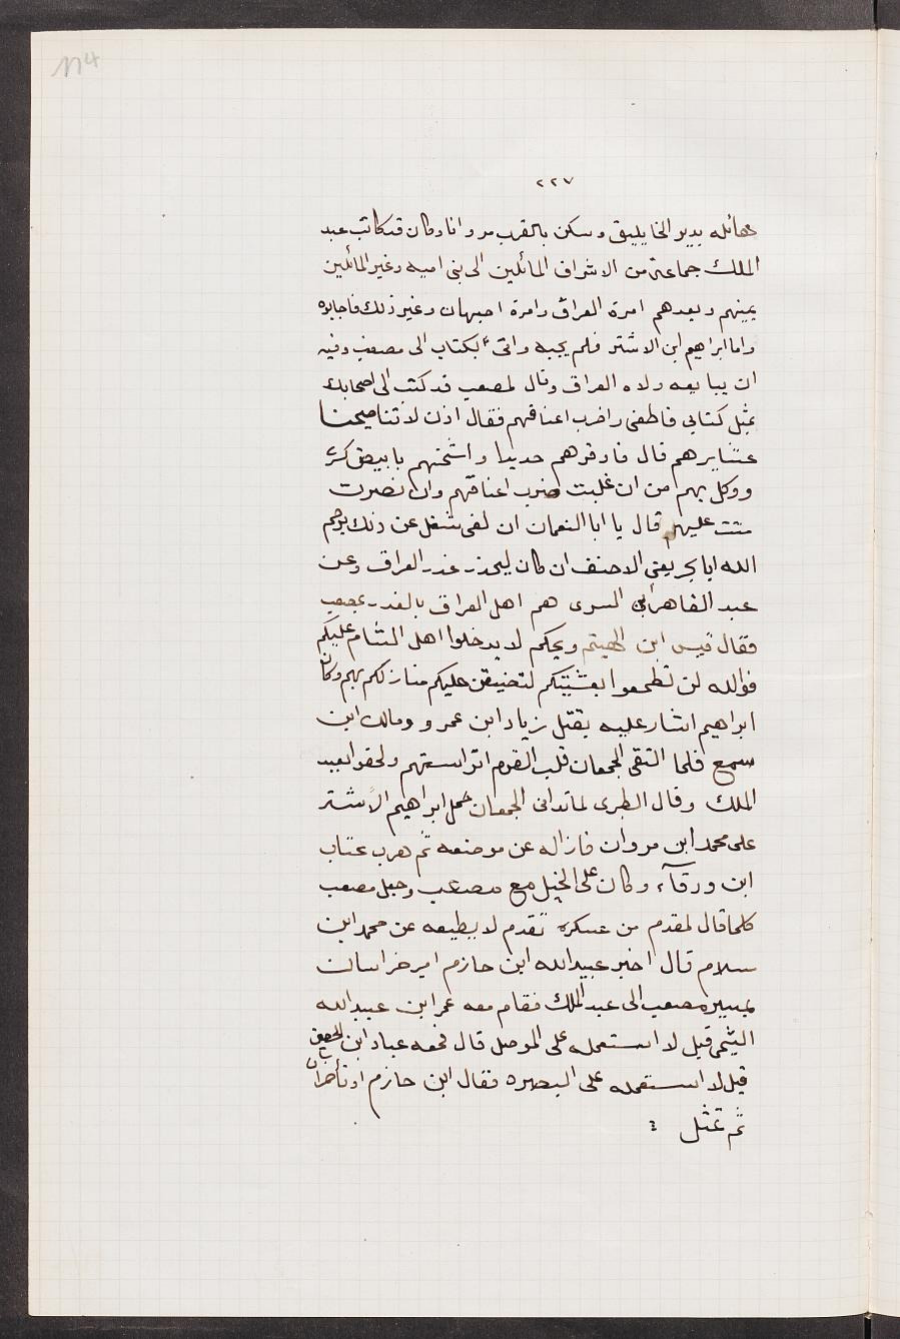 114
٢٢٧
بدير الخايليق وسكن بالقرب من وكان قد كاتب عبد
الملك جماعة من الاشراف المائلين الى بني اميه وغير المائلين
يمنيهم ويعدهم امرة العراق وامرة اصبهان وغير ذلك فاجابوه
واما ابراهيم ابن الاشتر فلم يجبه واتى بكتاب الى مصعب وفيه
ان يبايعه ولاه العراق وقال لمصعب قد كتب الى اصحابك
بمثل كتابي فاطعني واضرب اعناقهم فقال اذن لا
عشايرهم قال فاوقرهم حديدا بابيض كسرى
ووكل بهم من ان غلبت ضرب اعناقهم وان نصرت
مننت عليهم قال يا ابا النعمان ان لفي شغل عن ذلك يرحم
الله ابا بحر يعني الاحنف ان كان ليحذر غدر العراق وعن
عبد القاهر ابن السرى هم اهل العراق بالغدر بمصعب
فقال قيس ابن الهيثم ويحكم لا يدخلوا اهل الشام عليكم
فوالله لن تطمعوا بعشيتكم لتضيقن عليكم منازلكم بهم وكان
ابراهيم اشار عليه بقتل زياد ابن عمرو ومالك ابن
سمع فلما التقى الجمعان قلب القوم اتراستهم ولحقوا بعبد
الملك وقال الطبرى لما تدانى الجمعان حمل ابراهيم الأشتر
على محمد ابن مروان فازاله عن موضعه ثم هرب عتاب
ابن ورقآء وكان على الخيل مع مصعب وجعل مصعب
كلما قال لمقدم من عسكره تقدم لا يطيعه عن محمد ابن
سلام قال اخبر عبيدالله ابن حازم امير خراسان
بمسير مصعب الى عبد الملك فقام معه عمر ابن عبيدالله
قيل لا استعمله على الموصل قال فمعه عباد ابن الحصين
قيل لا استعمله على البصره فقال ابن حازم
ثم تمثل